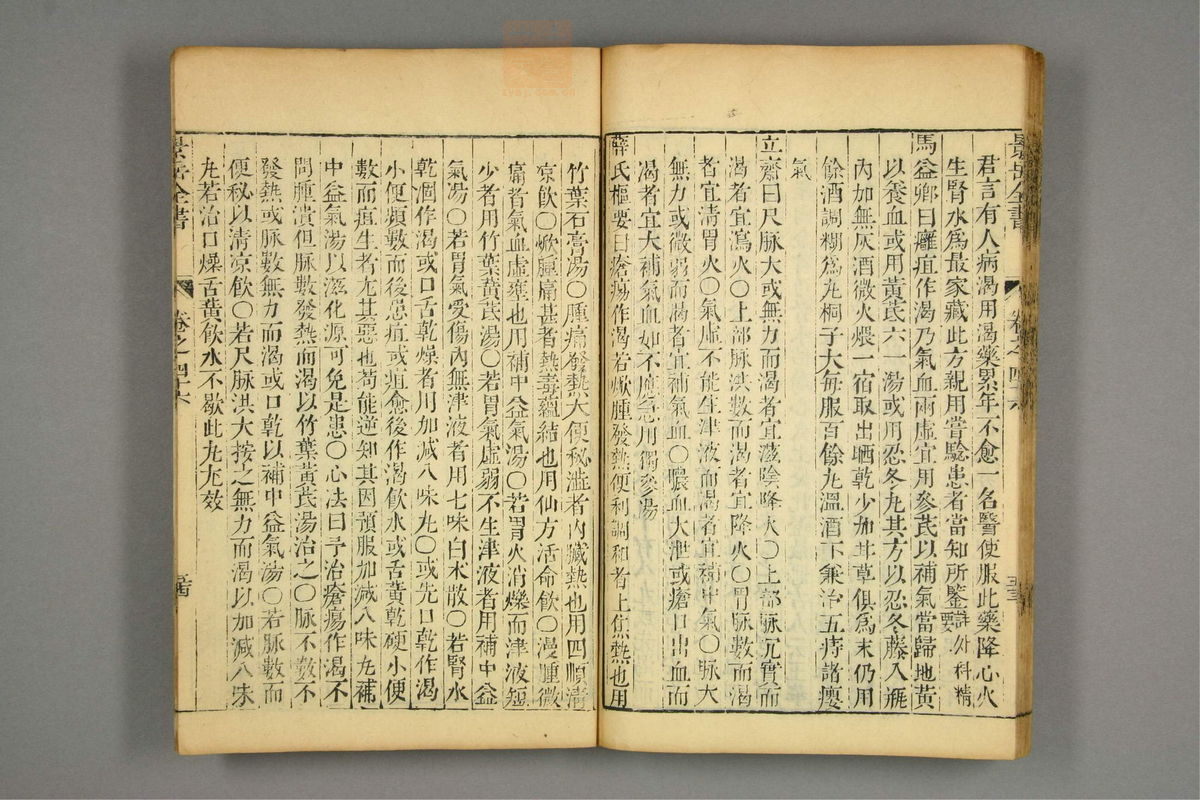 景岳全書
卷之四十六
君言有人病渴用渴藥累年不愈一名醫使服此藥降心火
生腎水爲最家藏此方親用嘗驗患者當知所鑒詳外科精要
馬益卿曰癰疽作渴乃氣血兩虛宜用參芪以補氣當歸地黄
以養血或用黄芪六一湯或用忍冬丸其方以忍冬藤入瓶
內加無灰酒微火煨一宿取出晒乾少加甘草俱爲末仍用
餘酒調糊爲丸桐子大每服百餘丸溫酒下兼治五痔諸癭
氣
立齋曰尺脉大或無力而渴者宜滋陰降火〇上部脉沉實而
渴者宜瀉火〇上部脉洪數而渴者宜降火〇胃脉數而渴
者宜清胃火〇氣虛不能生津液而渴者宜補中氣〇脉大
無力或微弱而渴者宜補氣血〇膿血大泄或瘡口出血而
渴者宜大補氣血如不應急用獨參湯
薛氏樞要曰瘡瘍作渴若焮腫發熱便利調和者上焦熱也用
竹葉石膏湯〇腫痛發熱大便秘澁者內臟熱也用四順清
凉飲〇焮腫痛甚者熱毒蘊結也用仙方活命飲〇漫腫微
痛者氣血虛壅也用補中益氣湯〇若胃火消爍而津液短
少者用竹葉黄芪湯〇若胃氣虛弱不生津液者用補中益
氣湯〇若胃氣受傷內無津液者用七味白术散〇若腎水
乾涸作渴或口舌乾燥者用加減八味丸〇或先口乾作渴
小便頻數而後患疽或疽愈後作渴飲水或舌黄乾硬小便
數而疽生者尤其惡也苟能逆知其因預服加減八味丸補
中益氣湯以滋化源可免是患〇心法曰予治瘡瘍作渴不
問腫潰但脉數發熱而渴以竹葉黄芪湯治之〇脉不數不
發熱或脉數無力而渴或口乾以補中益氣湯〇若脉數而
便秘以清凉飲〇若尺脉洪大按之無力而渴以加減八味
丸若治口燥舌黄飲水不歇此丸尤效
景岳全書
卷之四十六